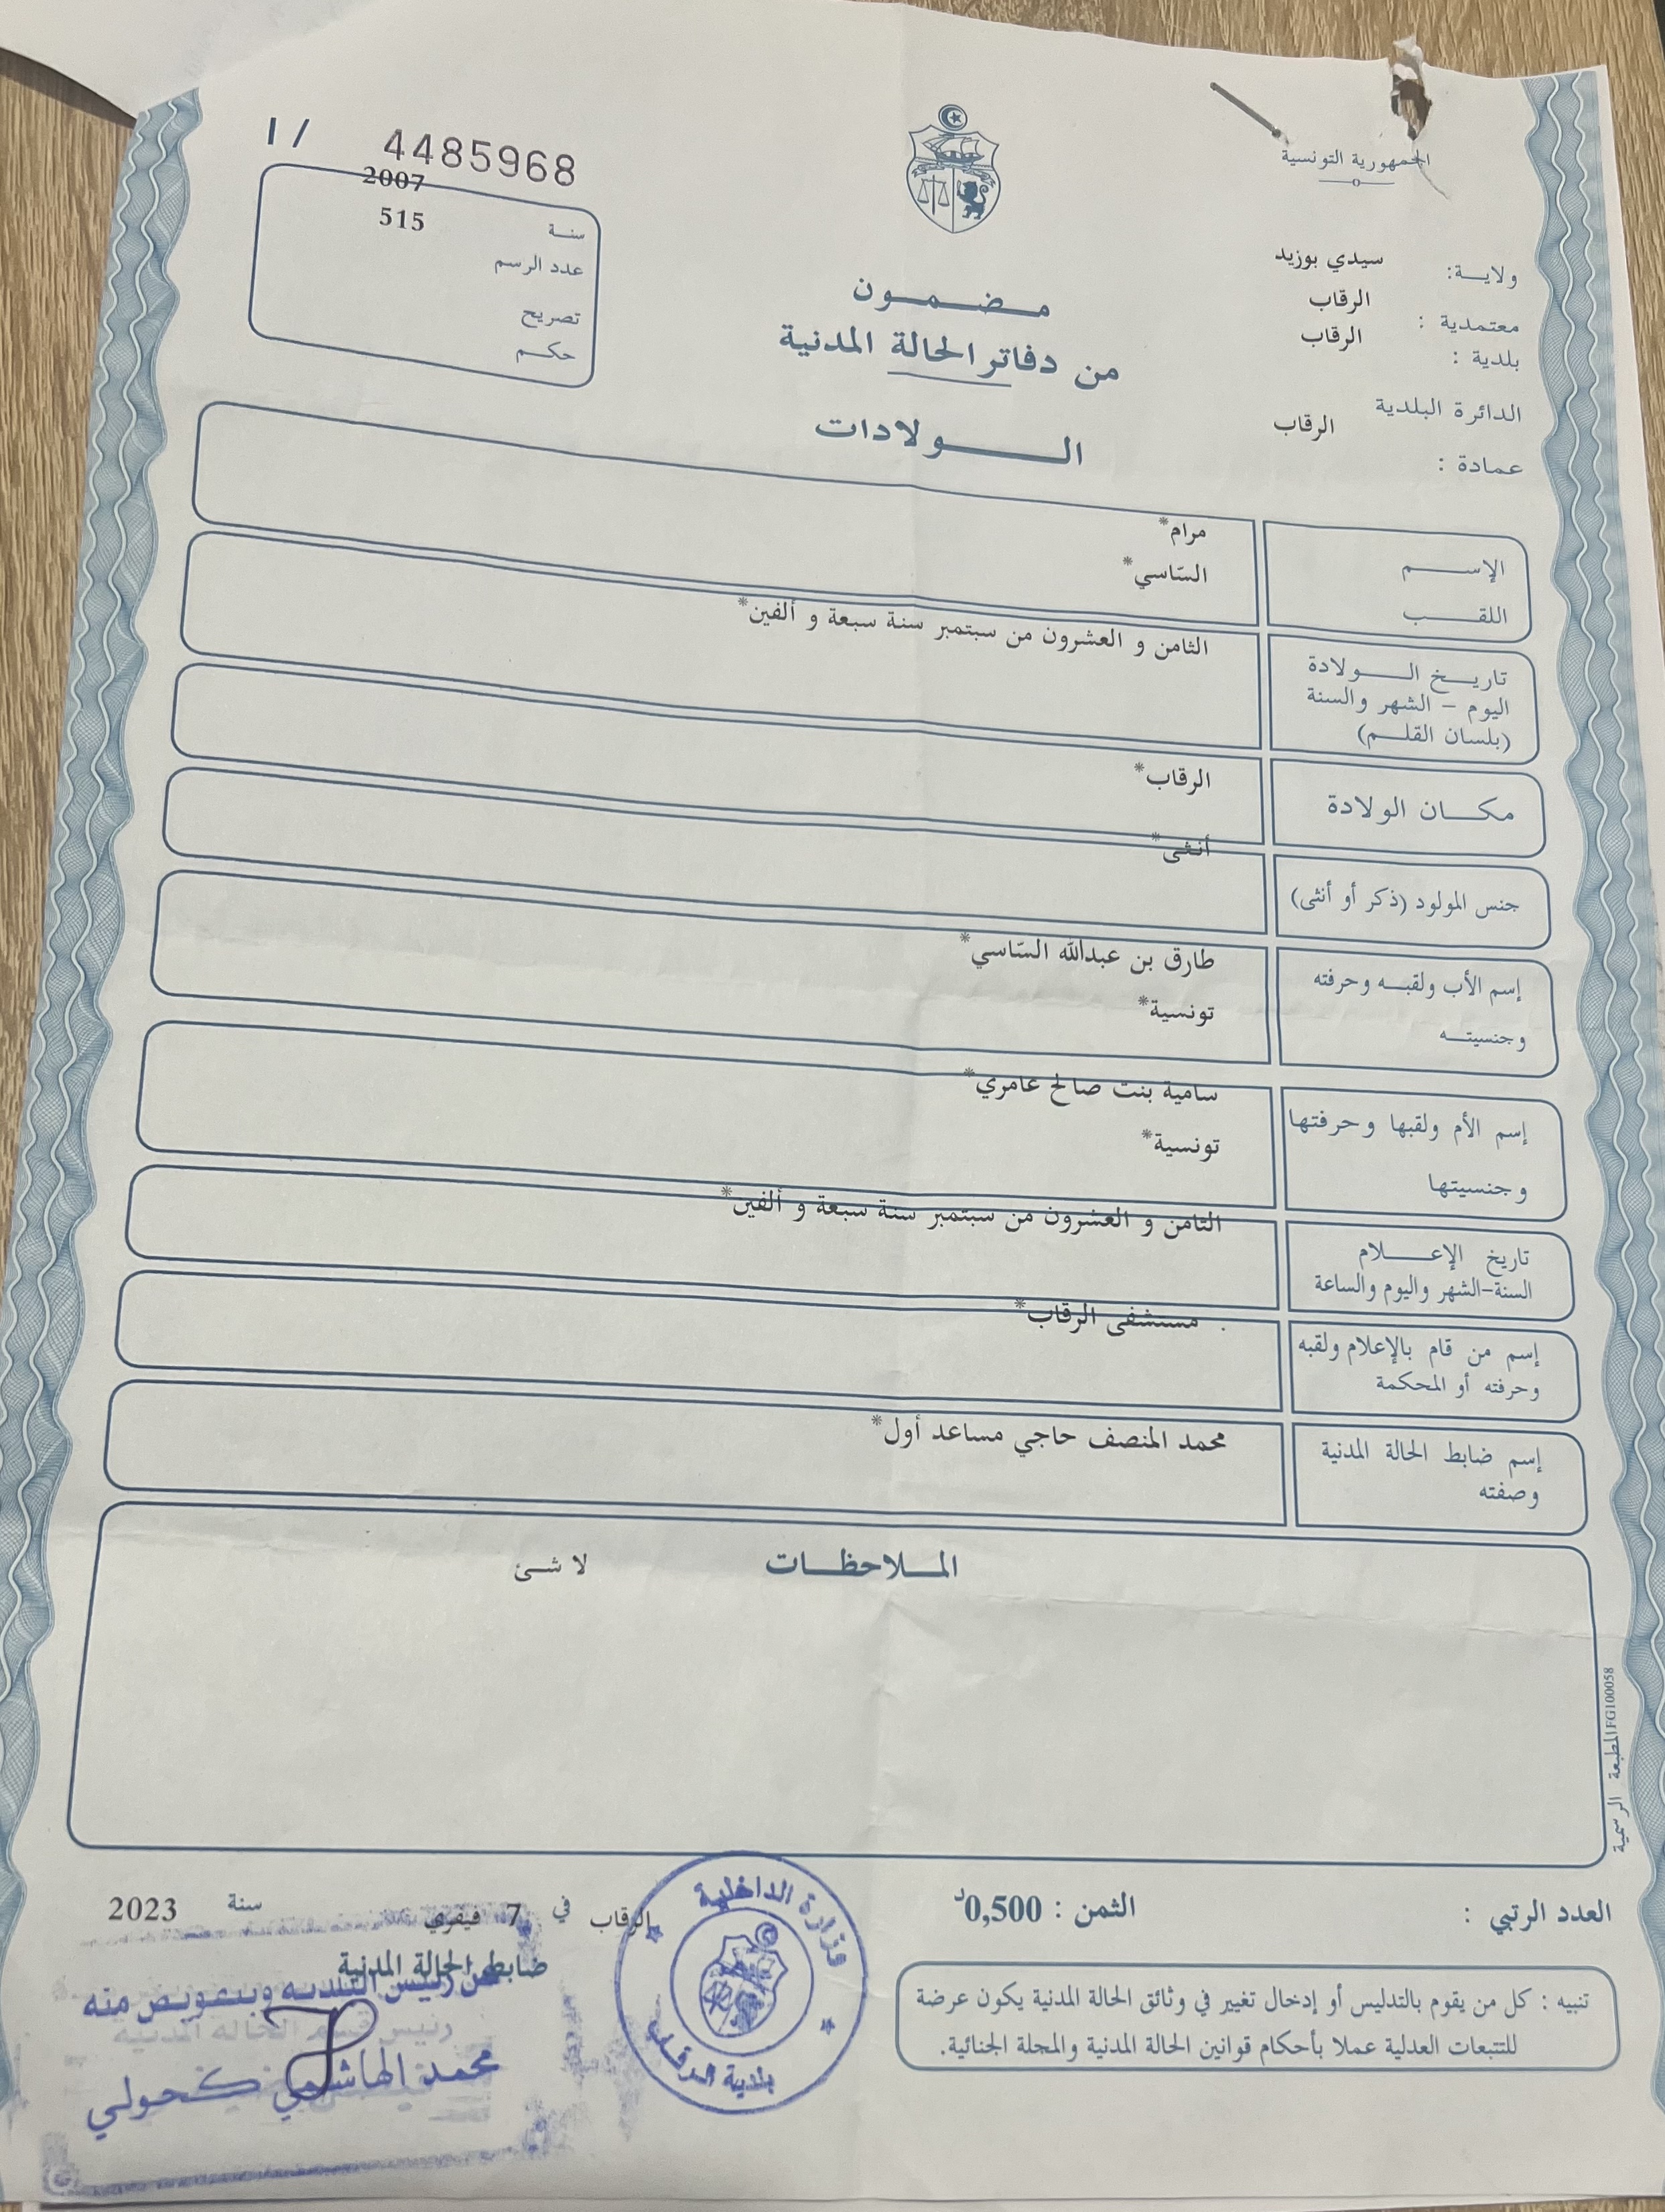 الجمهورية التونسية
1/ 4485968
2007
سنة
515
عدد الرسم
تصريح
حكم
ولاية: سيدي بوزيد
معتمدية : الرقاب
بلدية : الرقاب
الدائرة البلدية
عمادة : الرقاب
مضمون
من دفاتر الحالة المدنية
الولادات
الإسم مرام*
اللقب السّاسي*
تاريخ الولادة الثامن و العشرون من سبتمبر سنة سبعة و ألفين*
اليوم - الشهر والسنة
(بلسان القلم)
مكان الولادة الرقاب*
جنس المولود (ذكر أو أنثى) أنثى*
إسم الأب ولقبه وحرفته طارق بن عبدالله السّاسي*
وجنسيته تونسية*
إسم الأم ولقبها وحرفتها سامية بنت صالح عامري*
وجنسيتها تونسية*
تاريخ الإعلام الثامن و العشرون من سبتمبر سنة سبعة و ألفين*
السنة-الشهر واليوم والساعة
إسم من قام بالإعلام ولقبه . مستشفى الرقاب*
وحرفته أو المحكمة
إسم ضابط الحالة المدنية محمد المنصف حاجي مساعد أول*
وصفته
الملاحظات لا شئ
المطبعة الرسمية FG100058
العدد الرتبي :
الثمن : 0,500د
الرقاب في 7 فيفري سنة 2023
ضابط الحالة المدنية
عن رئيس البلدية وبتعويض منه
رئيس قسم الحالة المدنية
محمد الهاشمي كحولي
وزارة الداخلية
بلدية الرقاب
تنبيه : كل من يقوم بالتدليس أو إدخال تغيير في وثائق الحالة المدنية يكون عرضة
للتتبعات العدلية عملا بأحكام قوانين الحالة المدنية والمجلة الجنائية.